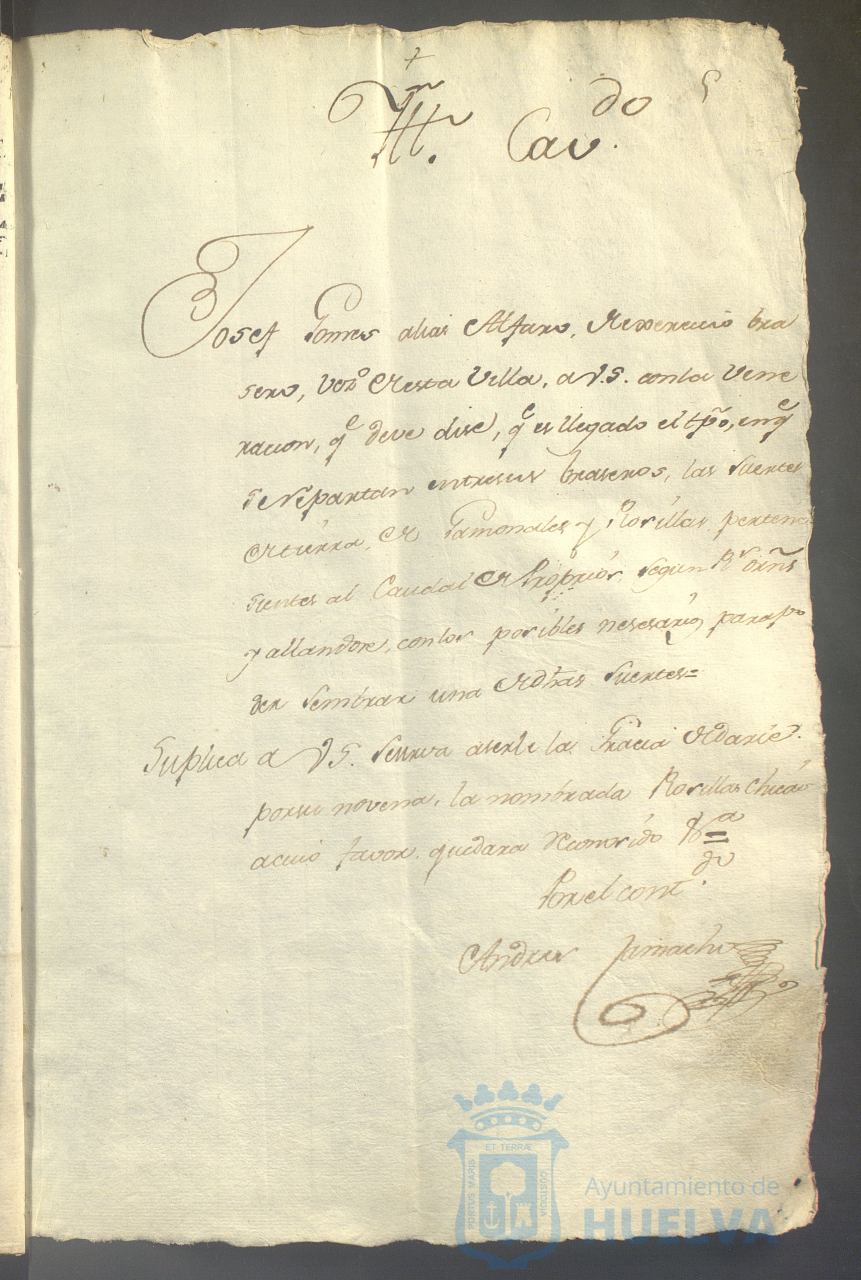 +
Ill.e Cav.do
5
Josef Gomes alias Alfaro, de exercicio bra
sero, vez.o de esta Villa, a V.S. con la vene
racion, q.e deve dise, q.e es llegado el tpo, en q.e
se repartan entre sus braseros, las suertes
de tierra, de Gamonales y Rosillas pertene
sientes al Caudal de Proprios segun R.s orn.s
y allandose, con los posibles nesesarios para po
der sembrar una de dhas suertes=
Suplica a V.S. se sirva aserle la Gracia de darle
por su novena, la nombrada Rosillas Chicas
a cuio favor quedara reconosido V.a
Por el cont.do
Andres Camacho
ET TERRÆ
PORTUS MARIS
CUSTODIA
Ayuntamiento de
HUELVA